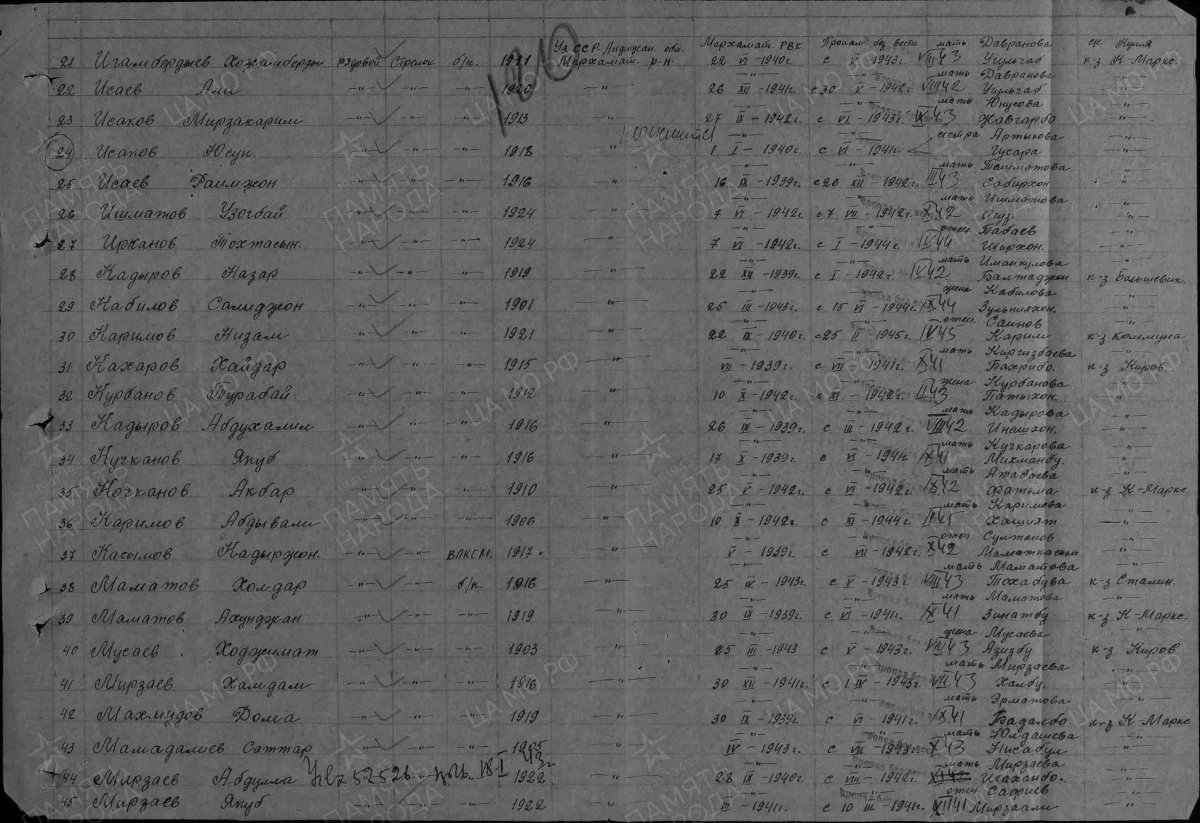 Уз ССР. Андижан. обл. Мархамат. РВК. Пропал без вести мать Давранова с/с Кулля
21 Игамбердыев Хожамберды рядовой Стрелок б/п. 1921 Мархамат. р-н. 22 VI -1940г. с V -1943г. VIII 43 Угульгаб к-з К. Маркс.
1210
-"- -"- мать Давранова -"-
22 Исаев Али -"- -"- -"- 1920 -"- 26 XII -1941г. с 30 V -1942г. VIII 42 Угульгаб -"-
-"- -"- мать Юнусова -"-
23 Исаков Мирзакарим -"- -"- -"- 1913 -"- 27 II -1942г. с VI -1943г. IX 43 Хавгарбо -"-
-"- -"- сестра Артыкова -"-
24 Исаков Юсуп. -"- -"- -"- 1918 -"- 1 I -1940г. с VI -1941г. Гусара -"-
-"- -"- мать Ташматова -"-
25 Исаев Раимжон -"- -"- -"- 1916 -"- 16 IX -1939г. с 20 XII -1942г. III 43 Сабирхон -"-
-"- -"- мать Ишматова -"-
26 Ишматов Узогбай -"- -"- -"- 1924 -"- 7 VI -1942г. с 7 VII -1942г. X 42 Огуз. -"-
-"- -"- отец Бабаев -"-
27 Ирканов Тохтасын. -"- -"- -"- 1924 -"- 7 VI -1942г. с I -1944г. IV 44 Ширхон. -"-
-"- -"- мать Иманкулова -"-
28 Кадыров Назар -"- -"- -"- 1919 -"- 22 XII -1939г. с I -1942г. IV 42 Балтаджон к-з Большевик.
-"- -"- жена Кабилова -"-
29 Кабилов Салиджон -"- -"- -"- 1901 -"- 25 III -1943г. с 15 VI -1944г. IX 44 Зульпияхон. -"-
-"- -"- отец Саинов -"-
30 Каримов Низам -"- -"- -"- 1921 -"- 22 IX -1940г. с 25 II -1945г. IV 45 Карим к-з Коммуна
-"- -"- мать Киргизбаева -"-
31 Кахаров Хайдар -"- -"- -"- 1915 -"- VII -1939г. с VI -1941г. XI 41 Бахрибо. к-з Киров
-"- -"- жена Курбанова -"-
32 Курбанов Турабай -"- -"- -"- 1912 -"- 10 X -1942г. с XI -1942г. II 43 Патыхон. -"-
-"- -"- мать Кадырова -"-
33 Кадыров Абдухалил -"- -"- -"- 1916 -"- 26 IX -1939г. с III -1942г. VIII 42 Инашхон. -"-
-"- -"- мать Кучкарова -"-
34 Кучканов Якуб -"- -"- -"- 1916 -"- 17 X -1939г. с VI -1941г. XI 41 Михманбу. -"-
-"- -"- мать Атабаева -"-
35 Ночканов Акбар -"- -"- -"- 1910 -"- 25 V -1942г. с VI -1942г. IX 42 Фатьма к-з К-Маркс
-"- -"- мать Каримова -"-
36 Каримов Абдывали -"- -"- -"- 1906 -"- 10 X -1942г. с XI -1944г. Хашият -"-
-"- -"- отец Султанов -"-
37 Касымов Кадыржон. -"- -"- ВЛКСМ. 1917 -"- V -1939г. с VII -1942г. X 42 -"-
-"- -"- мать Маматова -"-
38 Маматов Холдар -"- -"- б/п. 1916 -"- 25 IV -1943г. с V -1943г. VIII 43 Тохабува к-з Сталин.
-"- -"- мать Маматова -"-
39 Маматов Ахунджан -"- -"- -"- 1919 -"- 30 IX -1939г. с VI -1941г. XI 41 Зинатбу к-з К-Маркс.
-"- -"- жена Мусаева -"-
40 Мусаев Ходжимат -"- -"- -"- 1903 -"- 25 III -1943 с V -1943г. VIII 43 Азизбу к-з Киров
-"- -"- мать Мирзаева -"-
41 Мирзаев Хамдам -"- -"- -"- 1916 -"- 30 XII -1941г. с 1 IV -1943г. VII 43 Халбу. -"-
-"- -"- мать Эрматова -"-
42 Махмудов Дома -"- -"- -"- 1919 -"- 30 IX -1939г. с VI -1941г. XI 41 Бадалбо к-з К-Маркс
-"- -"- мать Юлдашева -"-
43 Мамадалиев Саттар -"- -"- -"- 1905 -"- IV -1943г. с VII -1943г. X 43 Нисабул -"-
-"- -"- мать Мирзаева -"-
44 Мирзаев Абдулла 52526 18 I 43г 1922 -"- 28 IX -1940г. с VIII -1942г. Шаханбо. -"-
-"- -"- отец Сафиев -"-
45 Мирзаев Якуб -"- -"- -"- 1922 -"- III -1941г. с 10 III -1941г. XII 41 Мирзаали -"-
ПАМЯТЬ НАРОДА
ЦА МО РФ